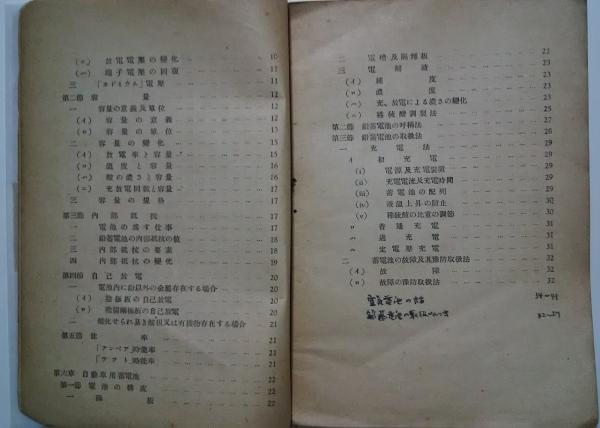 (ハ) 放電電壓の變化 10
(ニ) 端子電壓の回復 11
三 「カドミウム」電壓 11
第二節 容量 12
一 容量の意義及單位 12
(イ) 容量の意義 12
(ロ) 容量の單位 13
二 容量の變化 15
(イ) 放電率と容量 15
(ロ) 溫度と容量 16
(ハ) 酸の濃さと容量 16
(ニ) 充放電回數と容量 17
三 容量の規格 17
第三節 內部抵抗 17
一 電池の爲す仕事 17
二 鉛蓄電池の內部抵抗の値 18
三 內部抵抗の要素 18
四 內部抵抗の變化 19
第四節 自己放電 20
一 電池內に鉛以外の金屬存在する場合 20
(イ) 陰極板の自己放電 20
(ロ) 陽極板の自己放電 20
二 又は有機物存在する場合 21
第五節 能率 21
「アンペア」時能率 21
「ワット」時能率 21
第六章 自動車用蓄電池 22
第一節 電池の構成 22
一 極板 22
二 電槽及隔離板 22
三 電解液 23
(イ) 純度 23
(ロ) 濃度 23
(ハ) 充、放電による濃さの變化 23
(ニ) 稀硫酸調製法 25
第二節 鉛蓄電池の呼稱法 27
第三節 鉛蓄電池の取扱法 28
一 充電法 29
イ 初充電 29
(i) 電源及充電裝置 29
(ii) 充電電流及充電時間 29
(iii) 蓄電池の配列 29
(iv) 液溫上昇の防止 30
(v) 稀硫酸の比重の調節 30
ロ 普通充電 31
ハ 過充電 31
ニ 定電壓充電 31
二 蓄電池の故障及其豫防取扱法 32
(イ) 故障 32
(ロ) 故障の豫防取扱法 32